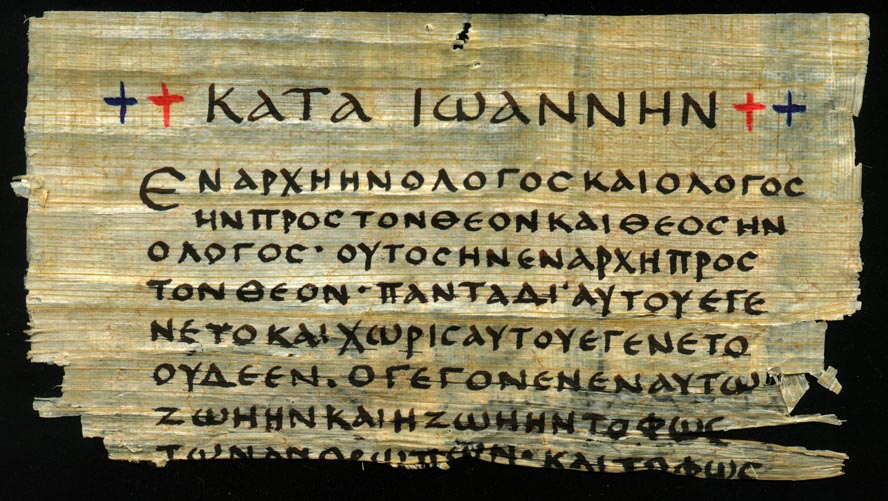 + + ΚΑΤΑ ΙΩΑΝΝΗΝ + +
ΕΝΑΡΧΗΗΝΟΛΟΓΟϹΚΑΙΟΛΟΓΟϹ
ΗΝΠΡΟϹΤΟΝΘΕΟΝΚΑΙΘΕΟϹΗΝ
ΟΛΟΓΟϹ· ΟΥΤΟϹΗΝΕΝΑΡΧΗΠΡΟϹ
ΤΟΝΘΕΟΝ·ΠΑΝΤΑΔΙ'ΑΥΤΟΥΕΓΕ
ΝΕΤΟΚΑΙΧΩΡΙϹΑΥΤΟΥΕΓΕΝΕΤΟ
ΟΥΔΕΕΝ. ΟΓΕΓΟΝΕΝΕΝΑΥΤΩ
ΖΩΗΗΝΚΑΙΗΖΩΗΗΝΤΟΦΩϹ
ΤΩΝΑΝΘΡΩΠΩΝ·ΚΑΙΤΟΦΩϹ